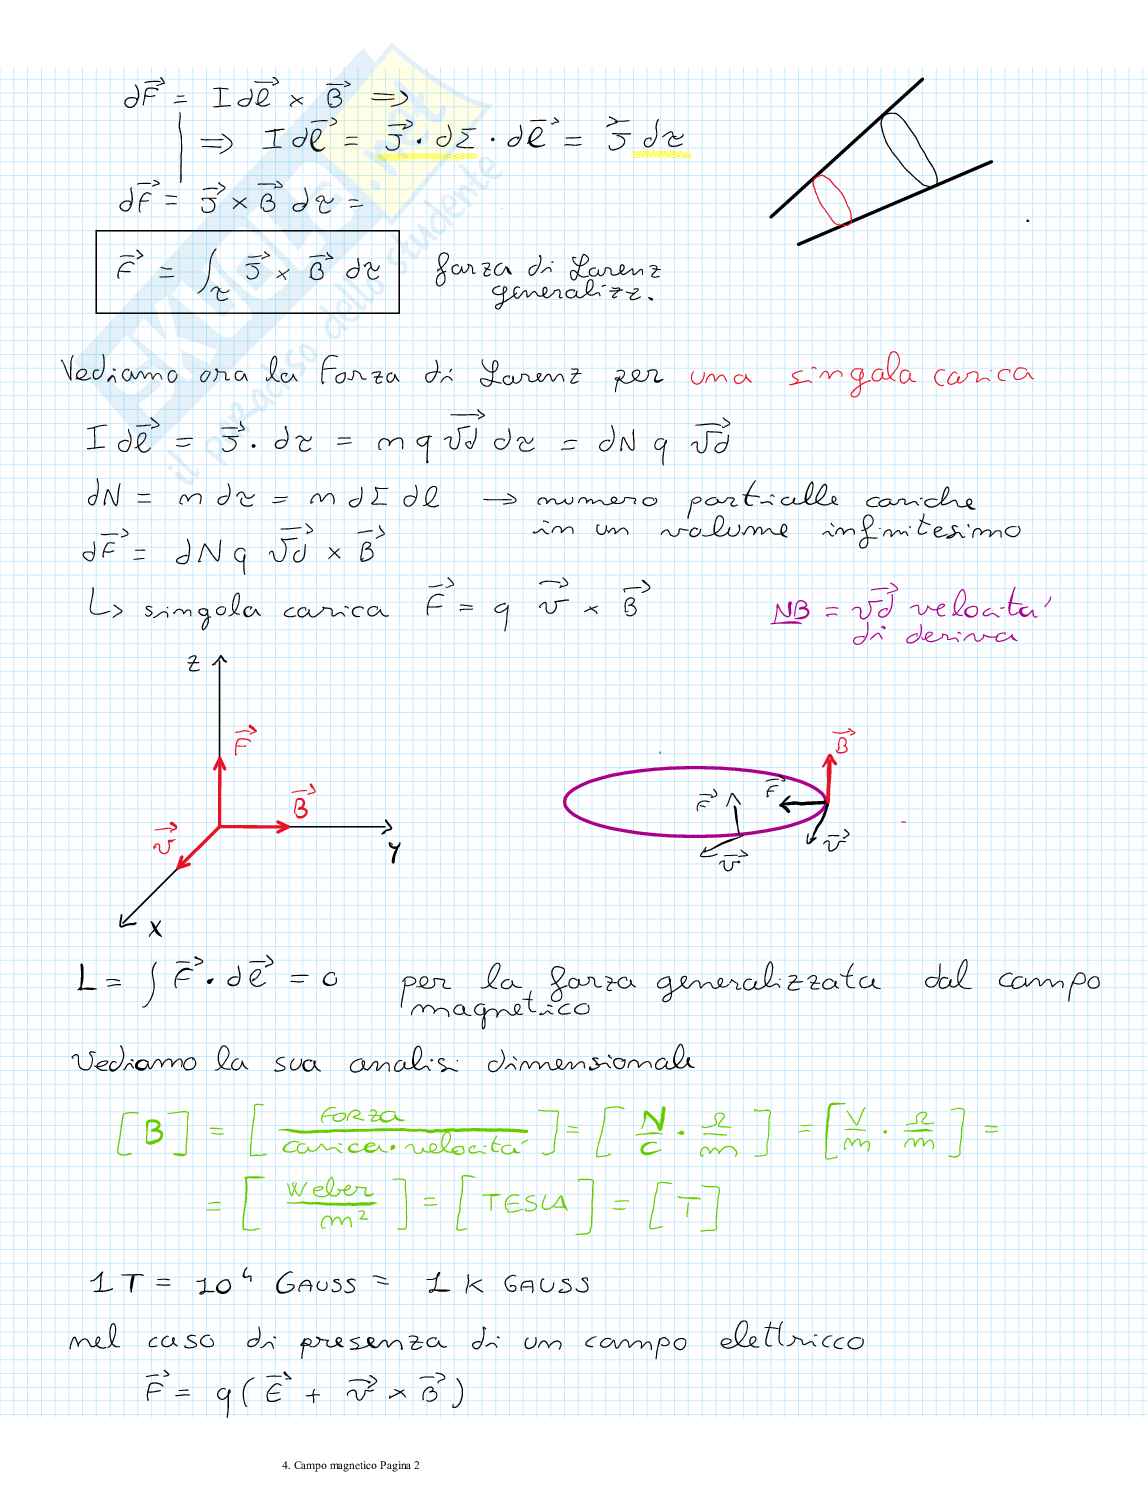 dF⃗ = I dℓ⃗ × B⃗ ⇒
⇒ I dℓ⃗ = J⃗ · dΣ · dℓ⃗ = J⃗ dτ
dF⃗ = J⃗ × B⃗ dτ =
F⃗ = ∫τ J⃗ × B⃗ dτ forza di Lorenz
generalizz.
Vediamo ora la Forza di Lorenz per una singola carica
I dℓ⃗ = J⃗ · dτ = n q v⃗d dτ = dN q v⃗d
dN = n dτ = n dΣ dℓ → numero particelle cariche
in un volume infinitesimo
dF⃗ = dN q v⃗d × B⃗
↳ singola carica F⃗ = q v⃗ × B⃗ NB = v⃗d velocita'
di deriva
z
F⃗
B⃗
v⃗
y
x
B⃗
F⃗
F⃗
v⃗
v⃗
L = ∫ F⃗ · dℓ⃗ = 0 per la forza generalizzata dal campo
magnetico
Vediamo la sua analisi dimensionale
[B] = [FORZA / carica · velocita'] = [N/C · Ω/m] = [V/m · Ω/m] =
= [Weber / m²] = [TESLA] = [T]
1 T = 10⁴ GAUSS = 1 K GAUSS
nel caso di presenza di un campo elettricco
F⃗ = q ( E⃗ + v⃗ × B⃗ )
4. Campo magnetico Pagina 2